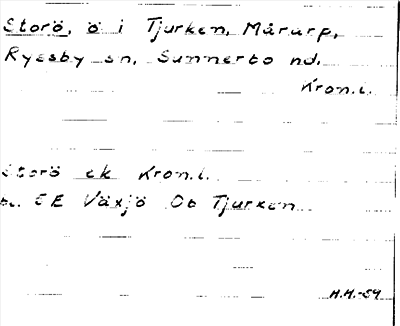 Storö, ö i Tjurken, Mårarp,
Ryssby sn, Sunnerbo hd.
Kron.l.
Storö ek Kron.l.
bl. 5E Växjö Ob Tjurken
H.H.-59